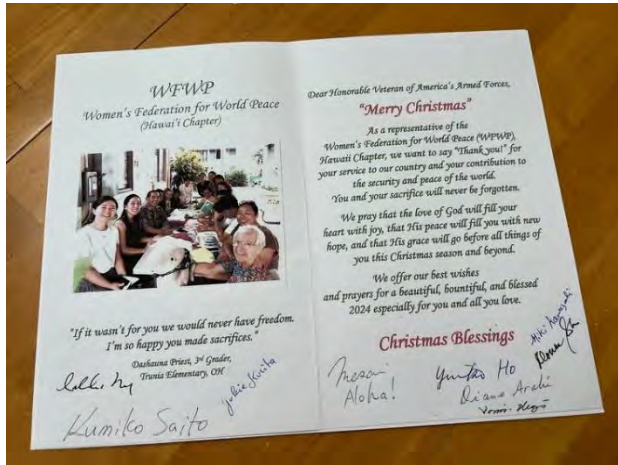 WFWP
Women's Federation for World Peace
(Hawai'i Chapter)
"If it wasn't for you we would never have freedom.
I'm so happy you made sacrifices."
Dashauna Priest, 3rd Grader,
Trunia Elementary, OH
Kumiko Saito
Dear Honorable Veteran of America's Armed Forces,
"Merry Christmas"
As a representative of the
Women's Federation for World Peace (WFWP),
Hawaii Chapter, we want to say "Thank you!" for
your service to our country and your contribution to
the security and peace of the world.
You and your sacrifice will never be forgotten.
We pray that the love of God will fill your
heart with joy, that His peace will fill you with new
hope, and that His grace will go before all things of
you this Christmas season and beyond.
We offer our best wishes
and prayers for a beautiful, bountiful, and blessed
2024 especially for you and all you love.
Christmas Blessings
Aloha!
Ho
Diane